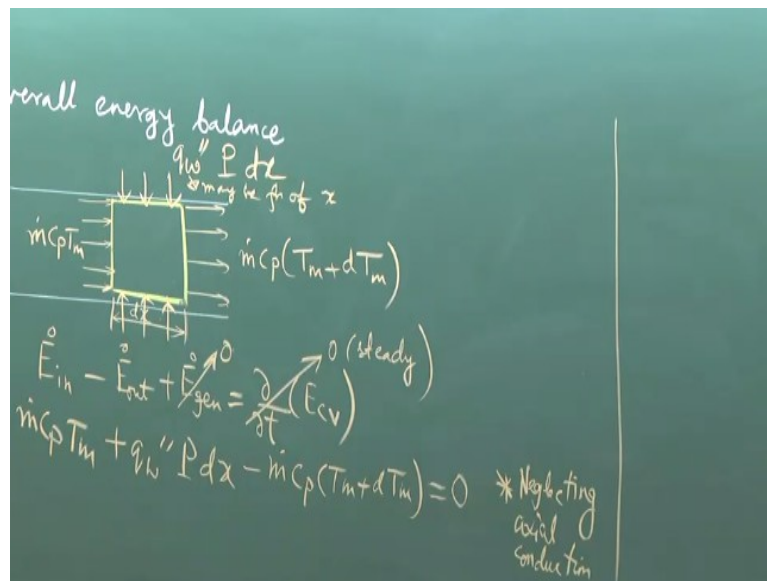 verall energy balance
q̇w'' P dx
*may be fn of x
ṁCpTm
ṁCp(Tm+dTm)
dx
Ėin − Ėout + Ėgen = ∂/∂t (Ecv)
0
0 (steady)
ṁCpTm + qw'' Pdx − ṁCp(Tm+dTm) = 0
* Neglecting
axial
conduction